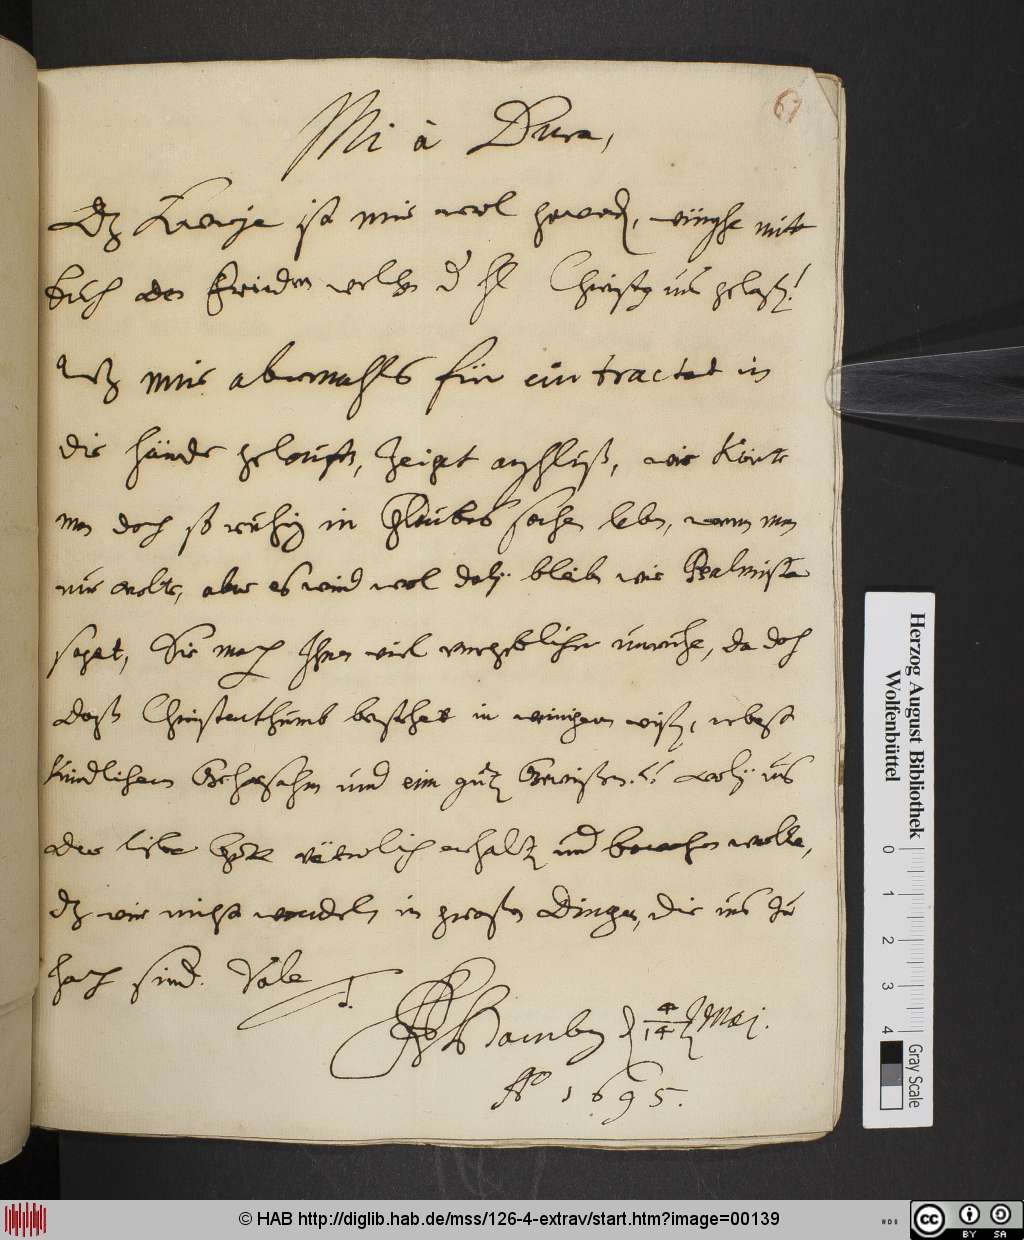 67
Mi à Dura,
Dz ist mir wol geword, wünsche mitt
Euch den Frieden welchen d' Hl Christus uns gelaßen!
Wz mir abermahls für ein tractat in
die hände geloufen, zeiget anschluß, wie könte
man doch so ruhig in Glaubens sachen leben, wenn man
nur wolte, aber es wird wol dabey bleiben wie Psalmista
saget, Sie mach Ihnen viel vergebliche unruhe, da doch
daß Christenthumb bestehet in wenigem wißen, nebst
kindlichem Gehorsahm und eim gutz Gewißen. uns
der liebe Gott väterlich erhaltz und bewahren wolle,
dz wir nicht wandeln in großen Dingen, die uns zu
hoch sind. Vale
Hamb d 4/14 Maj.
Aº 1695.
Herzog August Bibliothek
Wolfenbüttel
0 1 2 3 4
Gray Scale
© HAB http://diglib.hab.de/mss/126-4-extrav/start.htm?image=00139
cc BY SA